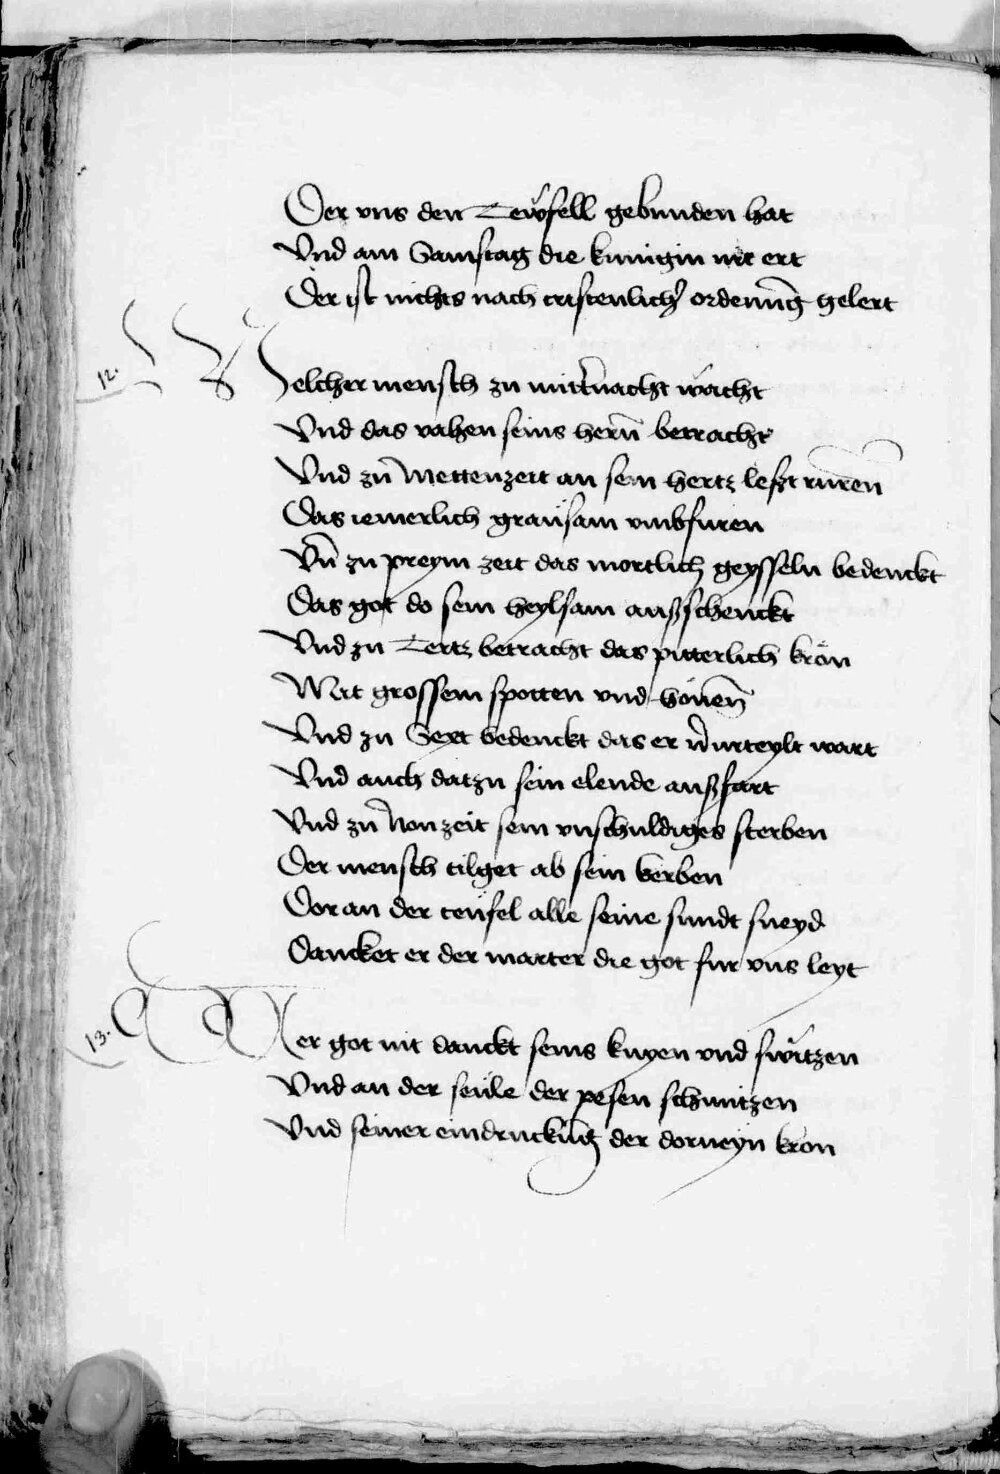 Der vns den Tewfell gebunden hat
Vnd am Samstag die kunigin nit ert
Der ist nichts nach cristenlicher ordenung gelert
12.
Welcher mensch zu mitternacht wacht
Vnd das vahen seins hern betracht
Vnd zu Mettenzeit an sein hertz lest ruren
Das iemerlich graüsam vmbfuren
Vn̄ zu preym zeit das mortlich geysseln bedenckt
Das got do sein heylsam außschenckt
Vnd zu Tertz betracht das pitterlich krön
Mit grossem spotten vnd hönen
Vnd zu Sext bedenckt das er verurteylt wart
Vnd auch datzu sein elende außfart
Vnd zu Nonzeit sein vnschuldiges sterben
Der mensch tilget ab sein kerben
Doran der teüfel alle seine sundt sneyd
Dancket er der marter die got fur vns leyt
13.
Wer got nit danckt seins knyen vnd switzen
Vnd an der seüle der pesen schmitzen
Vnd seiner eindruckung der dorneyn kron